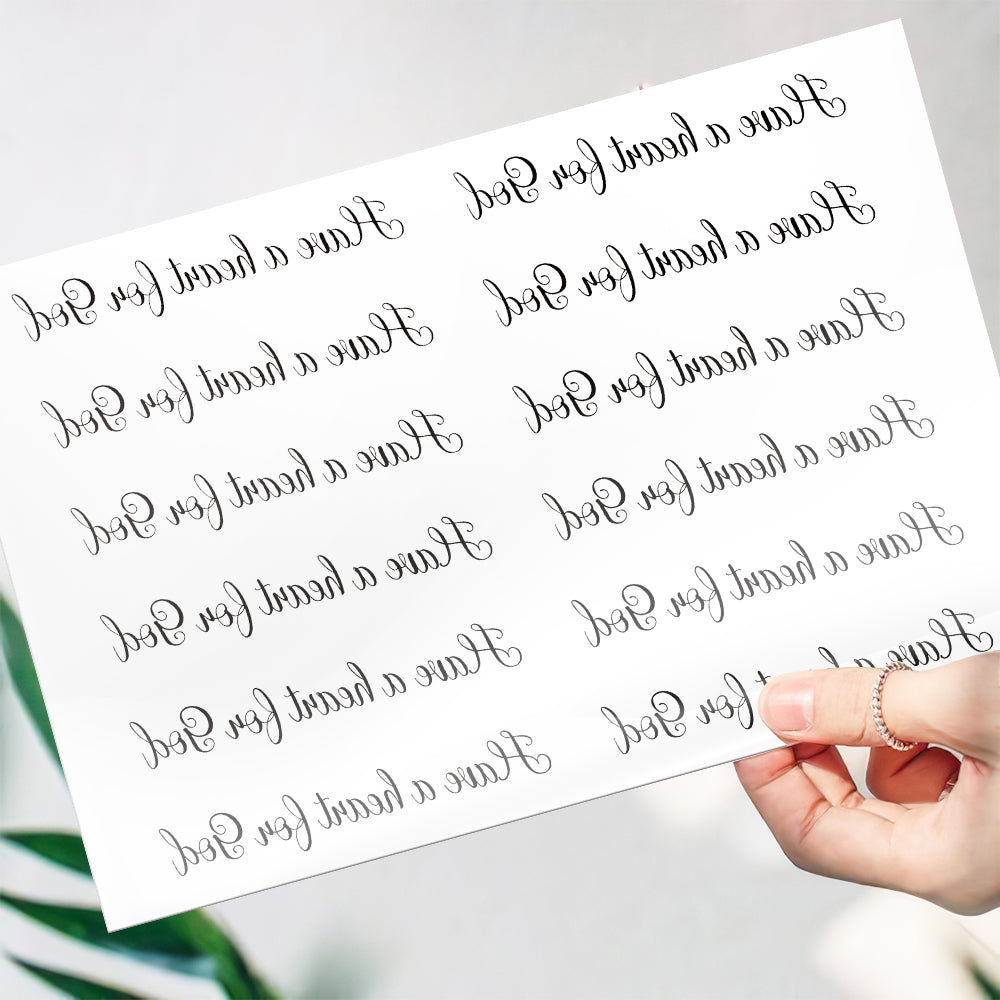 Have a heart for God
Have a heart for God
Have a heart for God
Have a heart for God
Have a heart for God
Have a heart for God
Have a heart for God
Have a heart for God
Have a heart for God
Have a heart for God
Have a heart for God
Have a heart for God